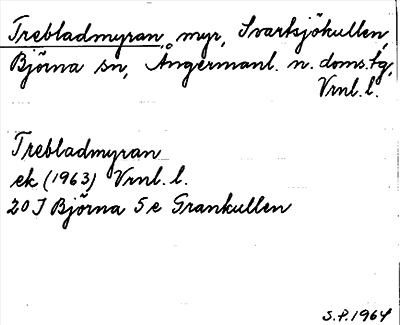 Trebladmyran, myr, Svartsjökullen,
Björna sn, Ångermanl. n. doms.tg,
Vrnl. l.
Trebladmyran
ek (1963) Vrnl. l.
20 J Björna 5 e Grankullen
S.P. 1964